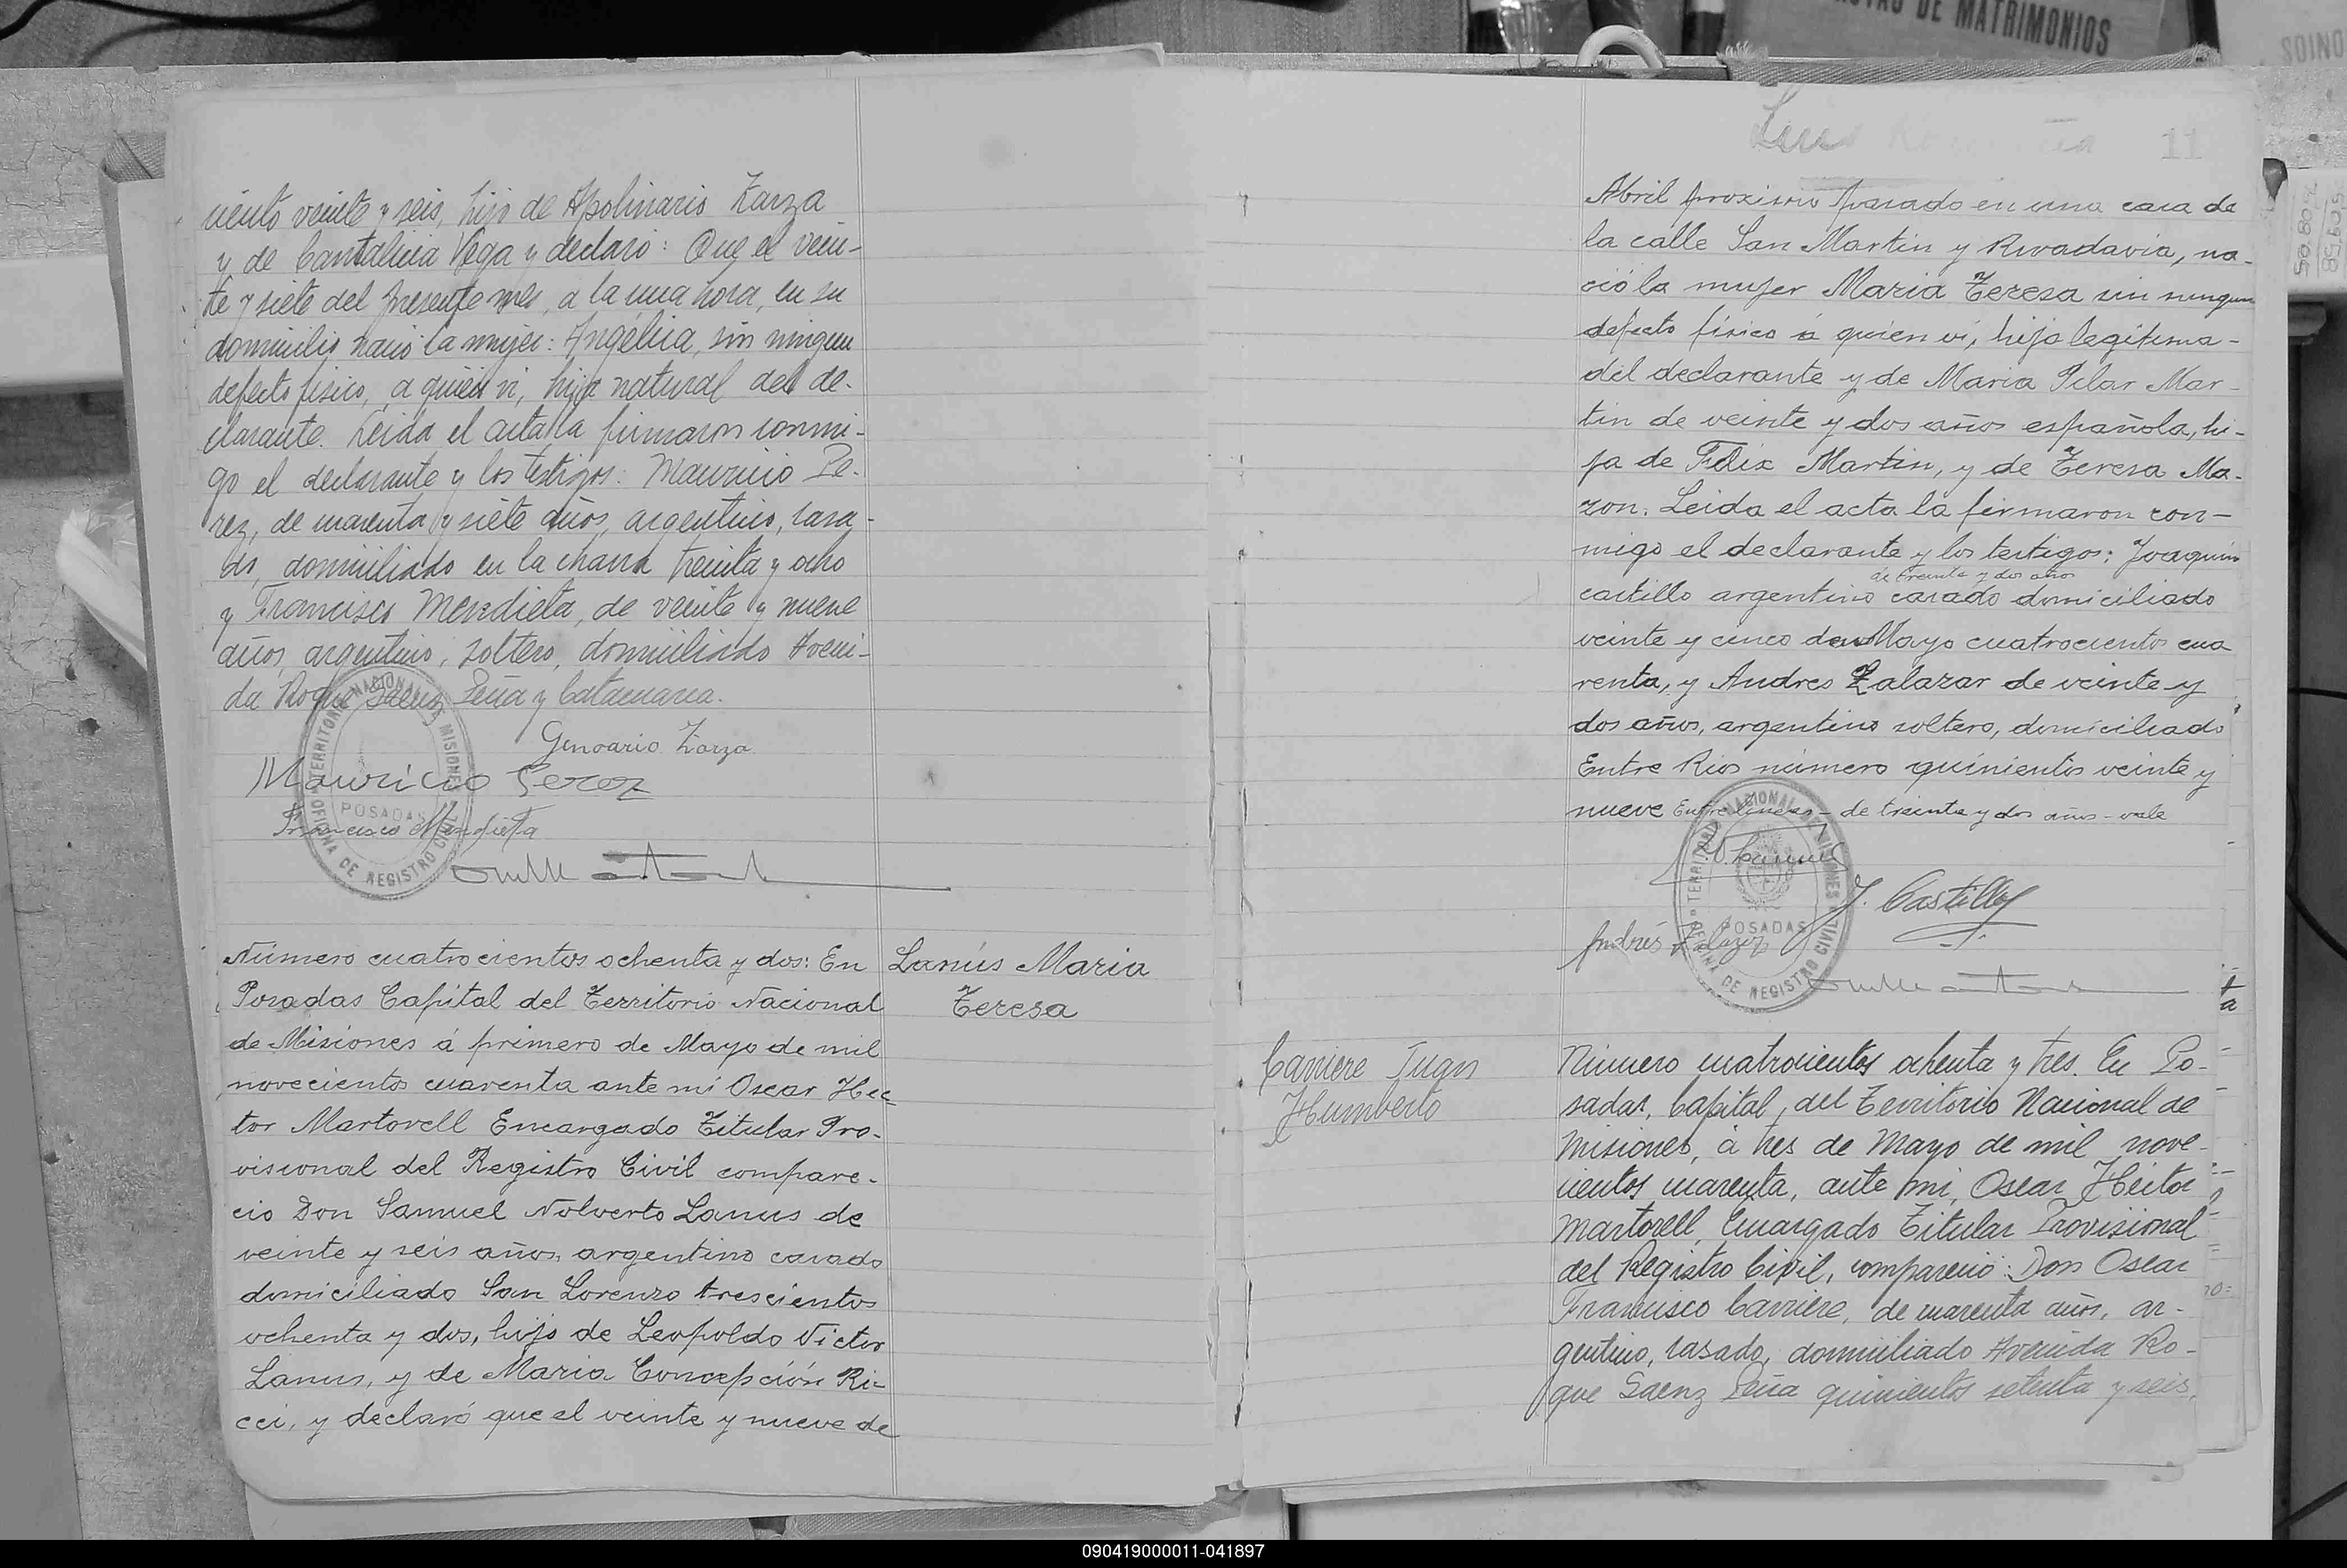 ciento veinte y seis, hijo de Apolinario Zarza
y de Cantalicia Vega y declaró: Que el vein-
te y siete del presente mes, a la una hora, en su
domicilio nació la mujer: Angélica, sin ningun
defecto fisico, a quien vi, hija natural del de-
clarante. Leida el acta la firmaron conmi-
go el declarante y los testigos: Mauricio Pe-
rez, de cuarenta y siete años, argentino, casa-
do, domiciliado en la chacra treinta y ocho
y Francisco Mendieta, de veinte y nueve
años, argentino, soltero, domiciliado Aveni-
da Roque Saenz Peña y Catamarca.
Genoario Zarza
Mauricio Perez
Francisco Mendieta
TERRITORIO NACIONAL DE MISIONES
POSADAS
OFICINA DE REGISTRO CIVIL
Número cuatrocientos ochenta y dos: En
Posadas Capital del Territorio Nacional
de Misiones á primero de Mayo de mil
novecientos cuarenta ante mi Oscar Hec-
tor Martorell Encargado Titular Pro-
visional del Registro Civil compare-
cio Don Samuel Nolverto Lanus de
veinte y seis años, argentino casado
domiciliado San Lorenzo trescientos
ochenta y dos, hijo de Leopoldo Victor
Lanus, y de Maria Concepción Ri-
cci, y declaró que el veinte y nueve de
Lanús Maria
Teresa
11
Abril proximo pasado en una casa de
la calle San Martin y Rivadavia, na-
ció la mujer Maria Teresa sin ningun
defecto físico á quien vi, hija legitima-
del declarante y de Maria Pilar Mar-
tin de veinte y dos años española, hi-
ja de Felix Martin, y de Teresa Ma-
zon. Leida el acta la firmaron con-
migo el declarante y los testigos: Joaquin
de treinta y dos años
castillo argentino casado domiciliado
veinte y cinco de Mayo cuatrocientos cua
renta, y Andres Zalazar de veinte y
dos años, argentino soltero, domiciliado
Entre Rios número quinientos veinte y
nueve Entre lineas - de treinta y dos años - vale
J. Castillo
Andrés Zalazar
TERRITORIO NACIONAL DE MISIONES
POSADAS
OFICINA DE REGISTRO CIVIL
Carriere Juan
Humberto
Número cuatrocientos ochenta y tres. En Po-
sadas, Capital, del Territorio Nacional de
Misiones, á tres de Mayo de mil nove-
cientos cuarenta, ante mi, Oscar Héctor
Martorell, Encargado Titular Provisional
del Registro Civil, compareció: Don Oscar
Francisco Carriere, de cuarenta años, ar-
gentino, casado, domiciliado Avenida Ro-
que Saenz Peña quinientos setenta y seis,
DE MATRIMONIOS
090419000011-041897